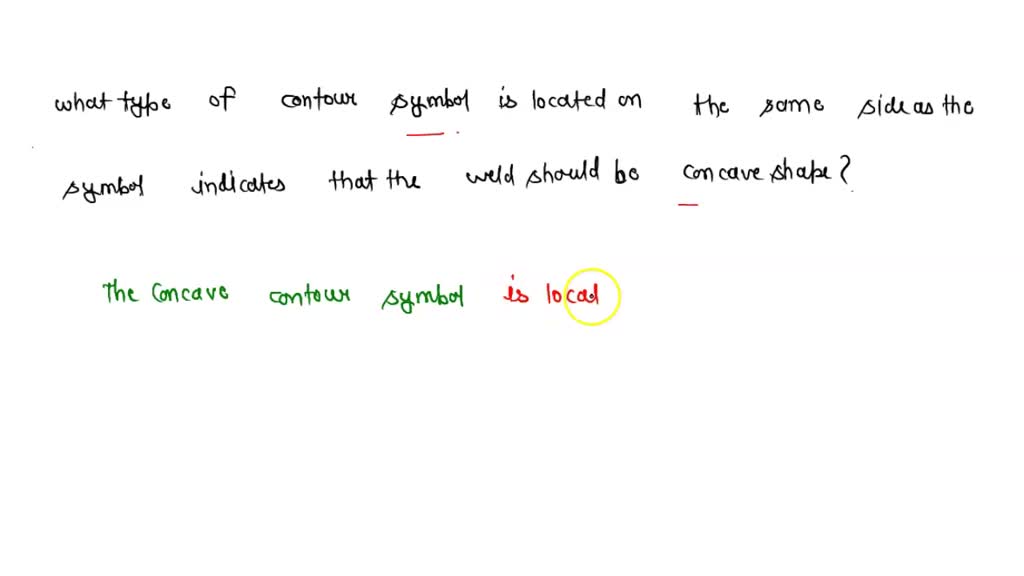 what type of contour symbol is located on the same side as the
symbol indicates that the weld should be concave shape?
The Concave contour symbol is local